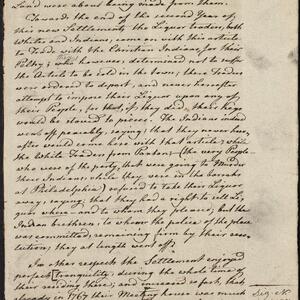 Land were about being made from them.
Towards the end of the second Year of
this new Settlement, the Liquor traders, both
White and Indians, came on with this article
to Trade with the Christian Indians, for their
Peltry; who however, determined not to suffer
the Article to be sold in the Town; these Traders
were ordered to depart, and never hereafter
attempt to impose their Liquor upon any of
their People, for that, if they did, their kegs
would be stove to pieces. The Indians indeed
went off peaceably, saying: that they never here,
after would come here with that article; while
the White Traders from (the very People
who were of the party, that were going to Murder
these Indians, while they were in the barraks
at Philadelphia) refused to take their Liquor
away; saying; that they had a right to sell Li,
quor where and to whom they please; but the
Indian brethren, to whom the police of the place
was committed, remaining firm by their reso,
lutions; they at length went off.
In other respects the Settlement enjoyed
perfect tranquility, during the whole time of
their residing there; and increased so fast, that
already in 1767 their Meeting house was much